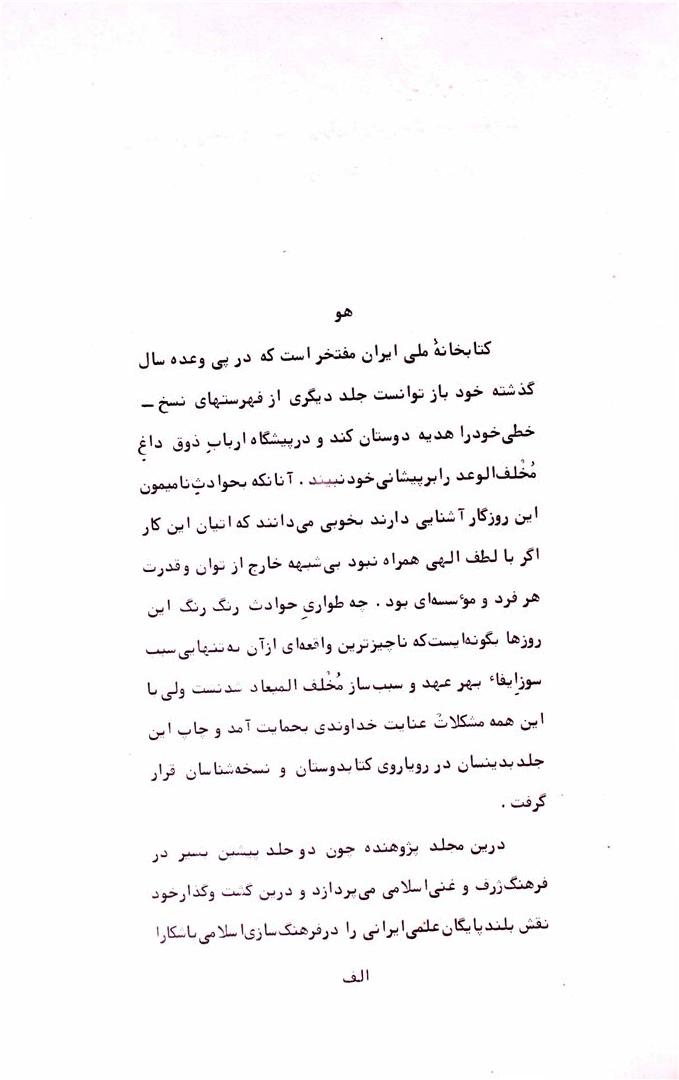 هو
کتابخانهٔ ملی ایران مفتخر است که در پی وعده سال
گذشته خود باز توانست جلد دیگری از فهرستهای نسخ ـ
خطی‌خودرا هدیه دوستان کند و درپیشگاه اربابِ ذوق داغِ
مُخْلف‌الوعد رابرپیشانی‌خودنبیند . آنانکه بحوادثِ نامیمون
این روزگار آشنایی دارند بخوبی می‌دانند که اتیان این کار
اگر با لطف الهی همراه نبود بی‌شبهه خارج از توان وقدرت
هر فرد و مؤسسه‌ای بود . چه طواریِ حوادث رنگ رنگ این
روزها بگونه‌ایست‌که ناچیزترین واقعه‌ای ازآن به‌تنهایی‌سبب
سوزِایفاء بهر عهد و سبب‌ساز مُخْلف المیعاد شدنست ولی با
این همه مشکلات عنایت خداوندی بحمایت آمد و چاپ این
جلدبدینسان در رویاروی کتابدوستان و نسخه‌شناسان قرار
گرفت .
درین مجلد پژوهنده چون دو جلد پیشین بسیر در
فرهنگ‌ژرف و غنی‌اسلامی می‌پردازد و درین گشت وگذارخود
نقش بلندپایگان‌علمی‌ایرانی را درفرهنگ‌سازی‌اسلامی‌باشکارا
الف